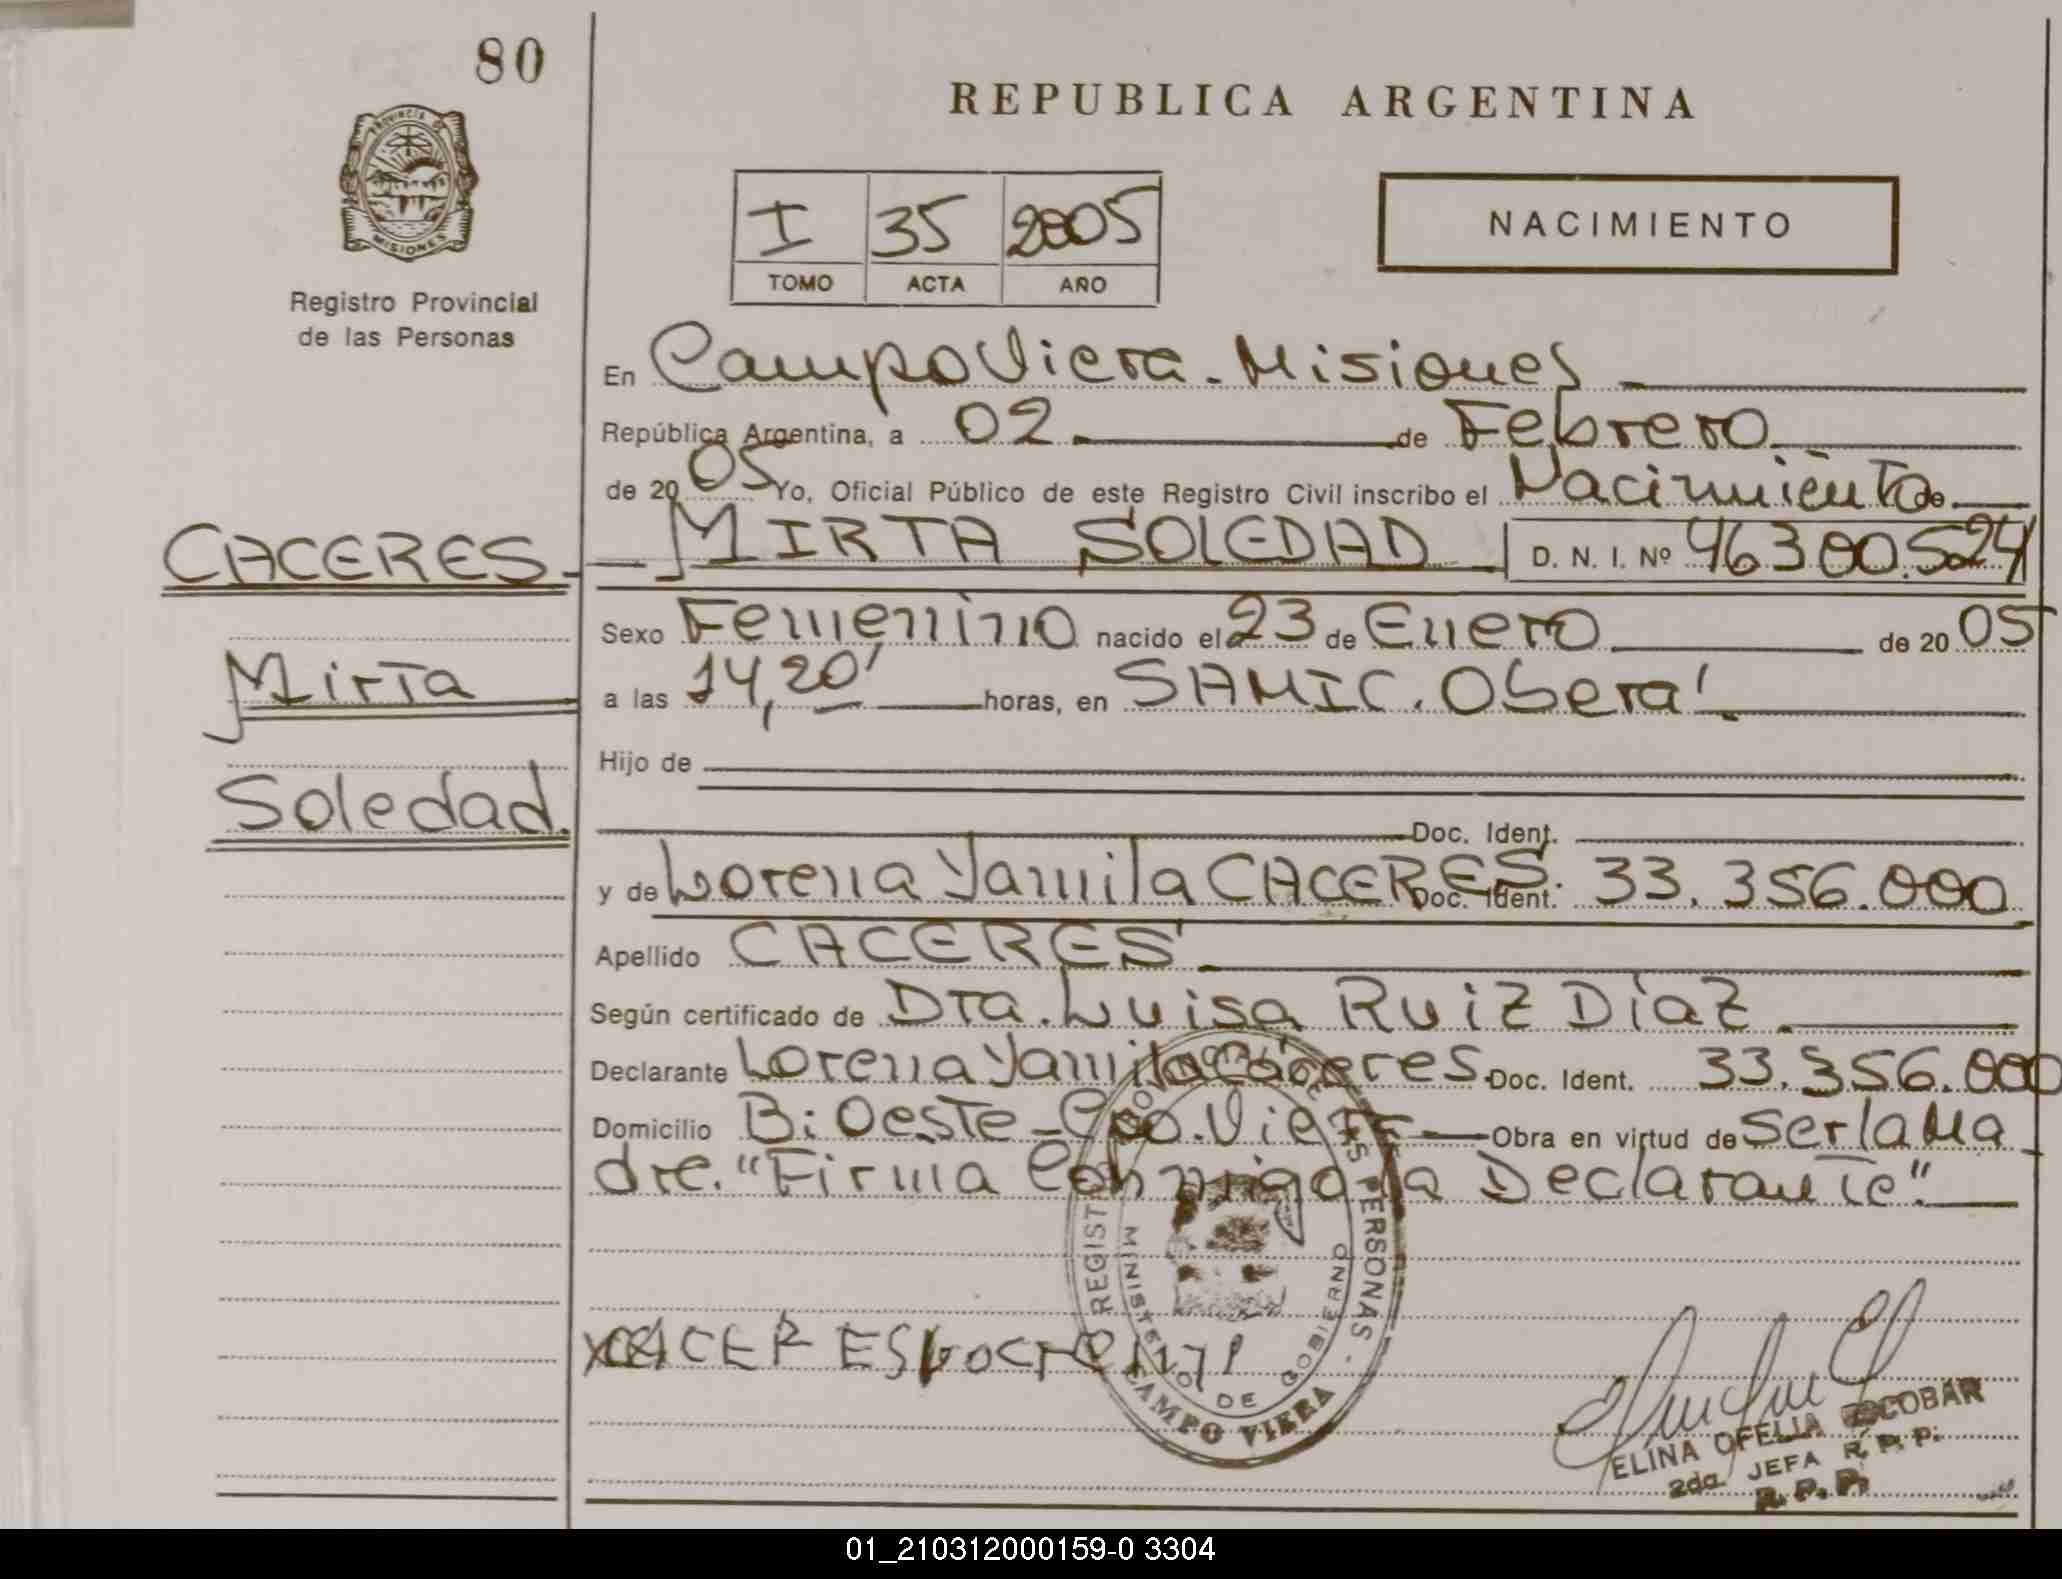 80
REPUBLICA ARGENTINA
PROVINCIA DE
MISIONES
Registro Provincial
de las Personas
I 35 2005
TOMO ACTA AÑO
NACIMIENTO
En Campo Viera - Misiones
República Argentina, a 02 de Febrero
de 2005 Yo, Oficial Público de este Registro Civil inscribo el Nacimiento de
CACERES MIRTA SOLEDAD D. N. I. Nº 46300.524
Sexo Femenino nacido el 23 de Enero de 2005
Mirta
a las 14,20' horas, en SAMIC. Oberá
Hijo de
Soledad.
Doc. Ident.
y de Lorena Yamila CACERES. Doc. Ident. 33.356.000
Apellido CACERES
Según certificado de Dra. Luisa Ruiz Diaz
Declarante Lorena Yamila Cáceres. Doc. Ident. 33.356.000
Domicilio B: Oeste - Cpo. Viera Obra en virtud de ser la Ma
dre. "Firma Conmigo la Declarante".
REGISTRO PROVINCIAL DE LAS PERSONAS -
MINISTERIO DE GOBIERNO
CAMPO VIERA
CACERES
ELINA OFELIA ESCOBAR
2da. JEFA R. P. P.
R. P. P.
01_210312000159-0 3304